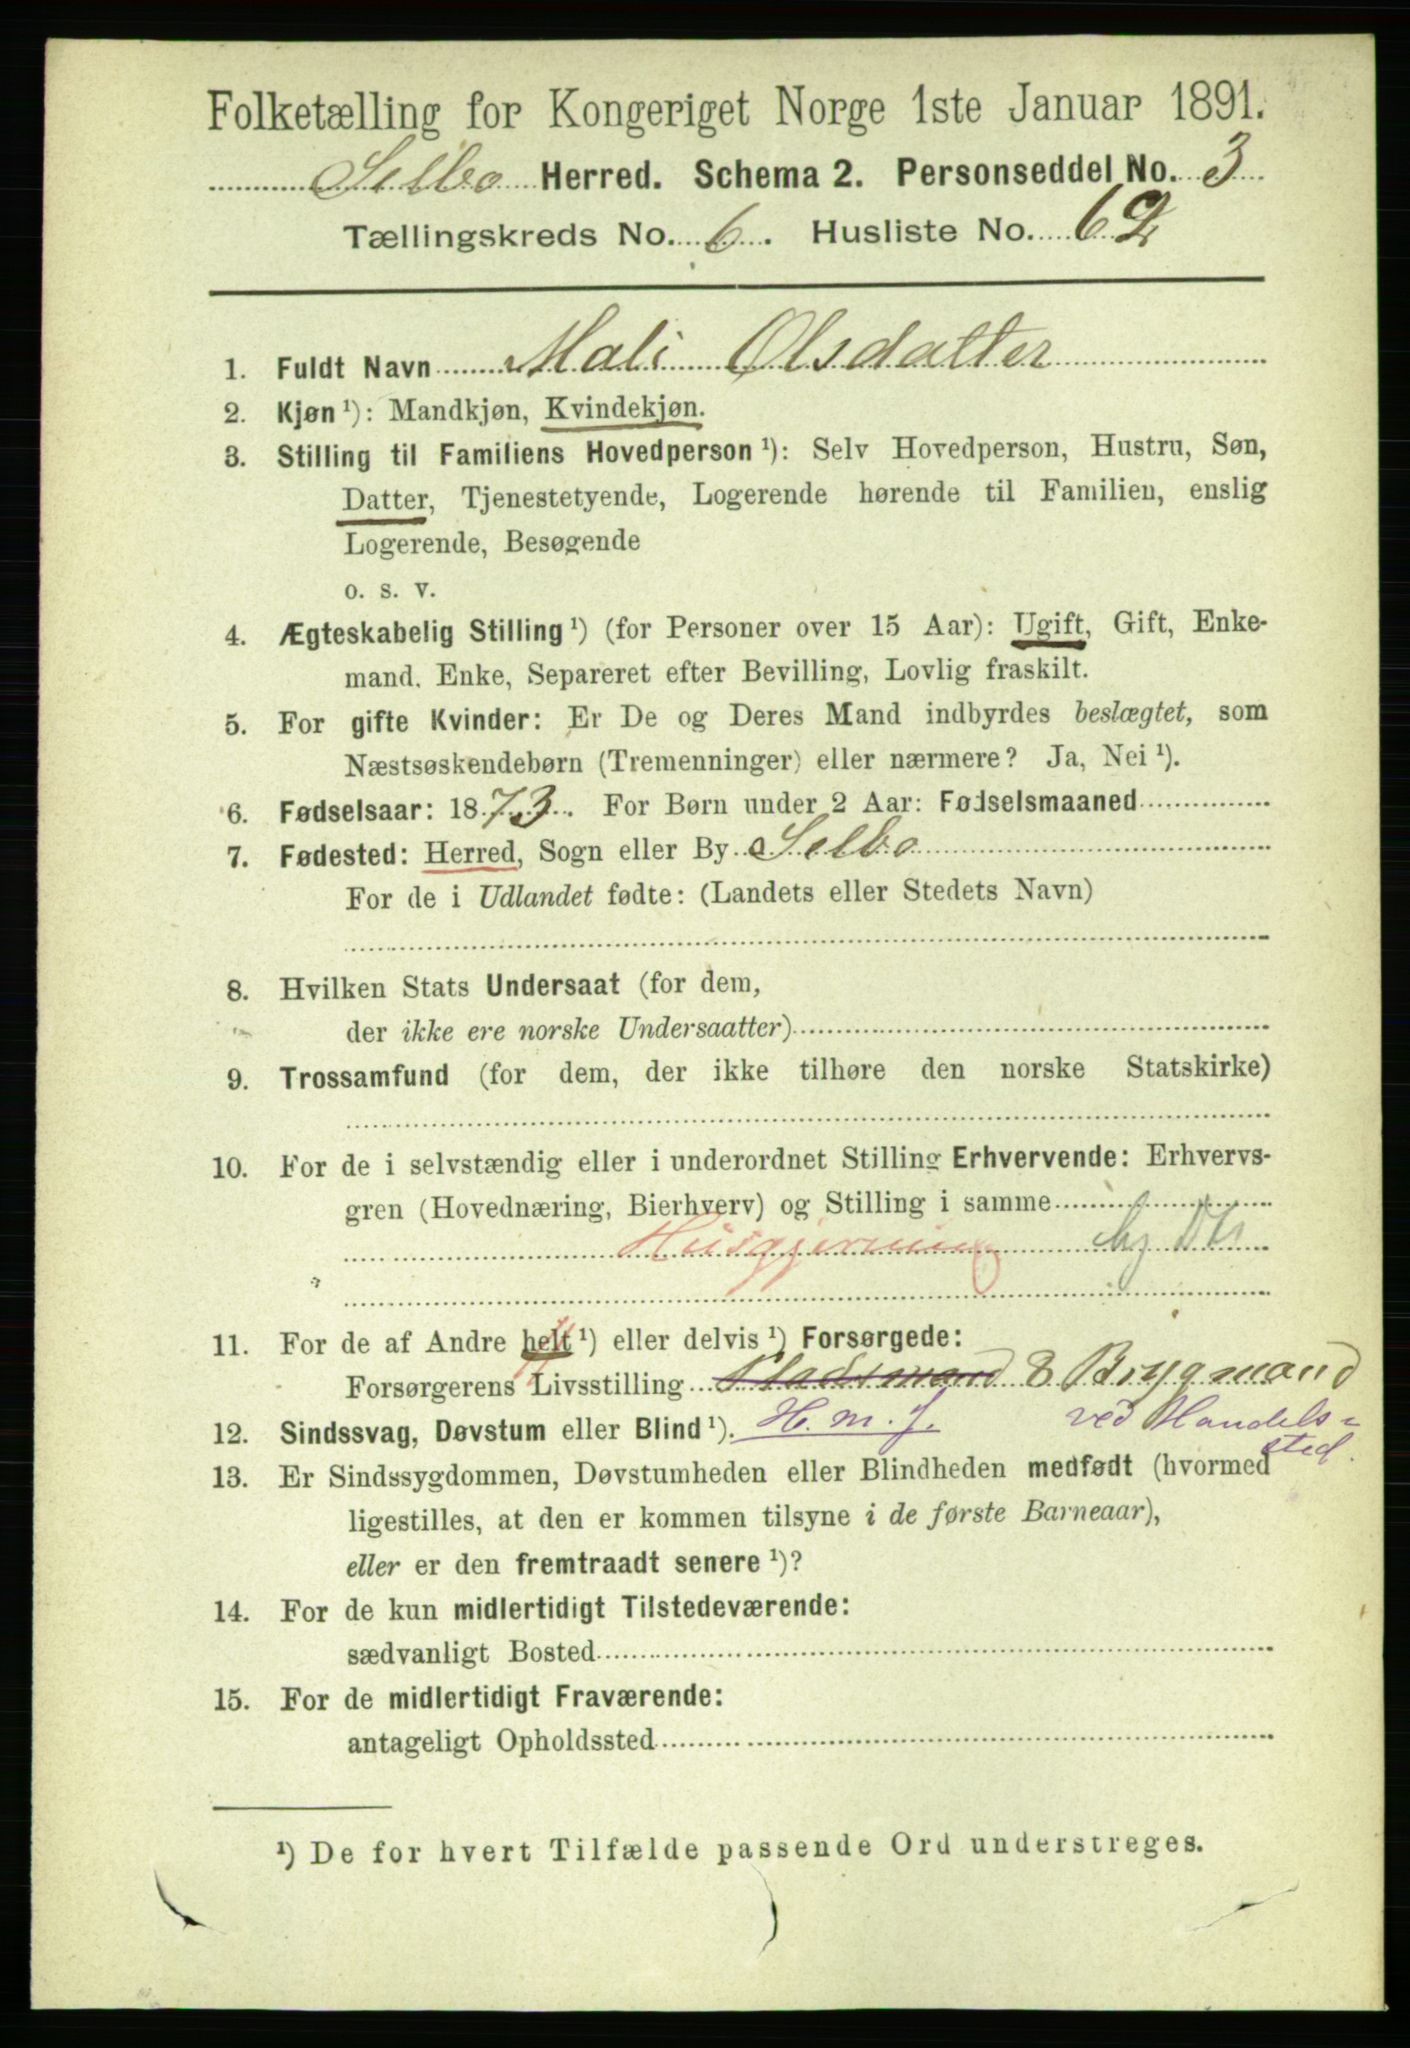 Folketælling for Kongeriget Norge 1ste Januar 1891.
Selbo Herred. Schema 2. Personseddel No. 3
Tællingskreds No. 6. Husliste No. 62
1. Fuldt Navn Mali Olsdatter
2. Kjøn ¹): Mandkjøn, Kvindekjøn.
3. Stilling til Familiens Hovedperson ¹): Selv Hovedperson, Hustru, Søn,
Datter, Tjenestetyende, Logerende hørende til Familien, enslig
Logerende, Besøgende
o. s. v.
4. Ægteskabelig Stilling ¹) (for Personer over 15 Aar): Ugift, Gift, Enke-
mand. Enke, Separeret efter Bevilling, Lovlig fraskilt.
5. For gifte Kvinder: Er De og Deres Mand indbyrdes beslægtet, som
Næstsøskendebørn (Tremenninger) eller nærmere? Ja, Nei ¹).
6. Fødselsaar: 1873. For Børn under 2 Aar: Fødselsmaaned
7. Fødested: Herred, Sogn eller By Selbo
For de i Udlandet fødte: (Landets eller Stedets Navn)
8. Hvilken Stats Undersaat (for dem,
der ikke ere norske Undersaatter)
9. Trossamfund (for dem, der ikke tilhøre den norske Statskirke)
10. For de i selvstændig eller i underordnet Stilling Erhvervende: Erhvervs-
gren (Hovednæring, Bierhverv) og Stilling i samme
Husgjerning
11. For de af Andre helt ¹) eller delvis ¹) Forsørgede:
Forsørgerens Livsstilling Pladsmand & Brygmand
12. Sindssvag, Døvstum eller Blind ¹). H. m. J. ved Handels-
sted.
13. Er Sindssygdommen, Døvstumheden eller Blindheden medfødt (hvormed
ligestilles, at den er kommen tilsyne i de første Barneaar),
eller er den fremtraadt senere ¹)?
14. For de kun midlertidigt Tilstedeværende:
sædvanligt Bosted
15. For de midlertidigt Fraværende:
antageligt Opholdssted
¹) De for hvert Tilfælde passende Ord understreges.